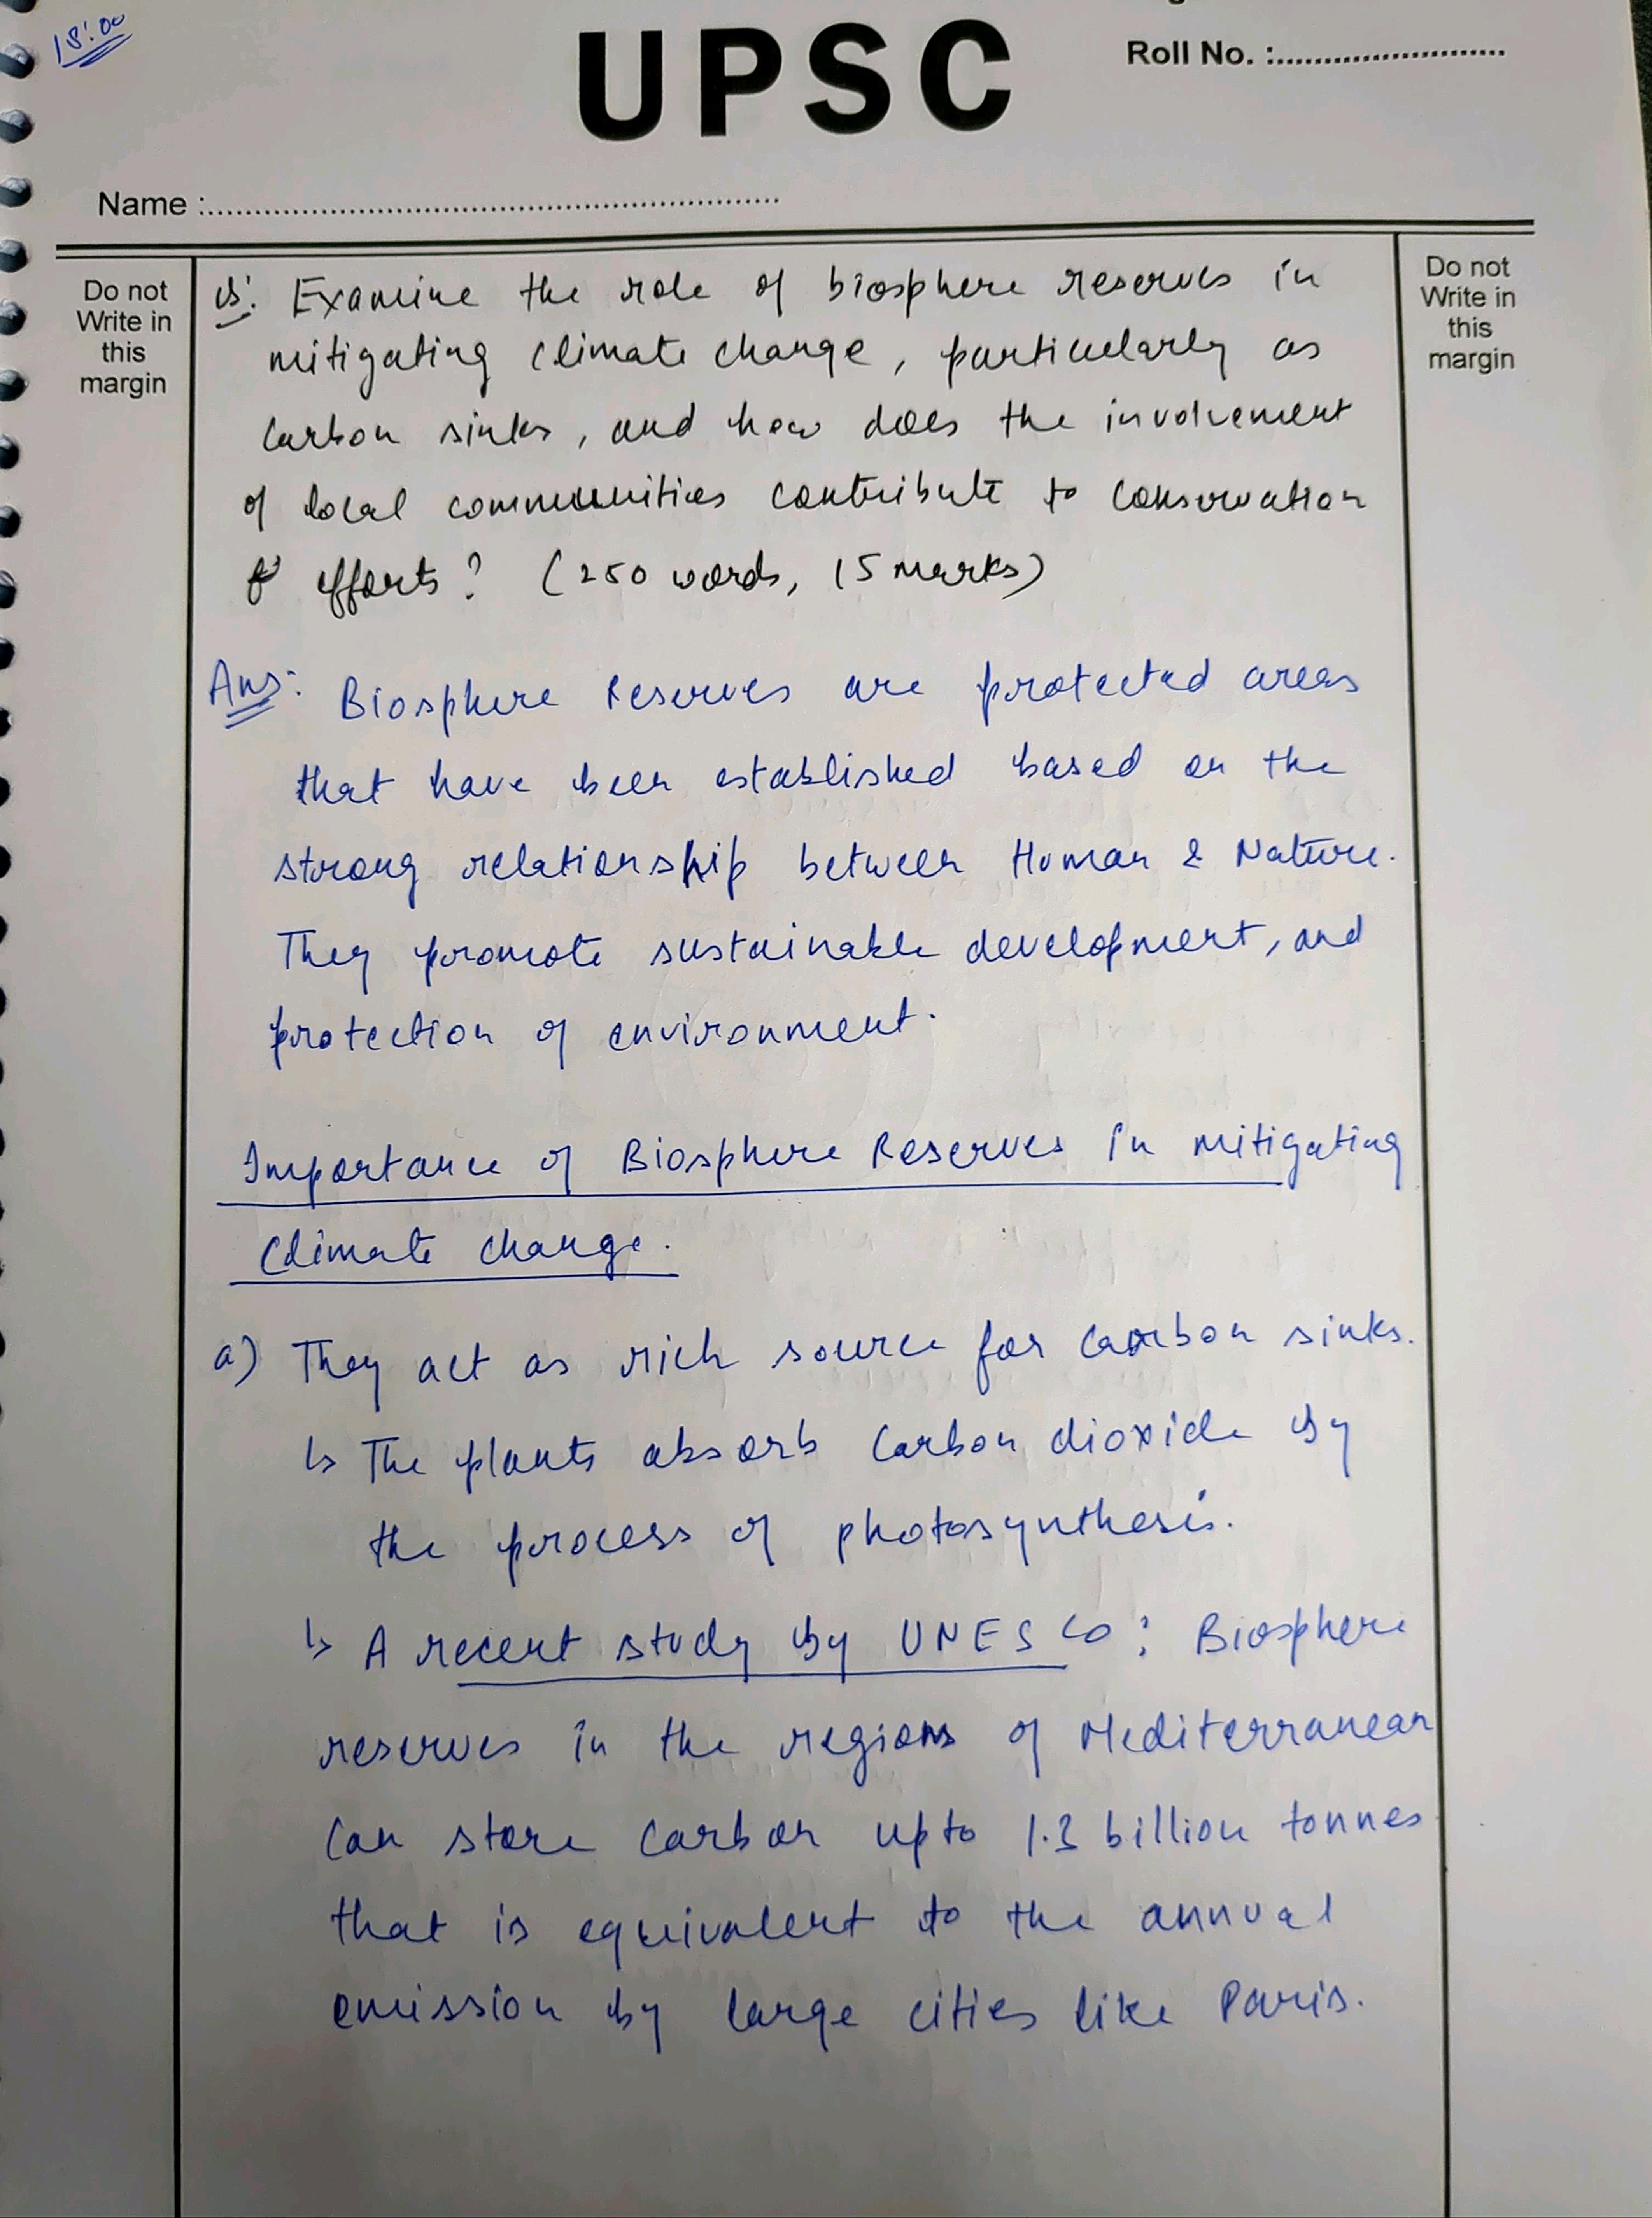 18:00
UPSC
Roll No. :
Name :
Do not
Write in
this
margin
Do not
Write in
this
margin
Q: Examine the role of biosphere reserves in
mitigating climate change, particularly as
carbon sinks, and how does the involvement
of local communities contribute to conservation
efforts? (250 words, 15 marks)
Ans: Biosphere Reserves are protected areas
that have been established based on the
strong relationship between Human & Nature.
They promote sustainable development, and
protection of environment.
Importance of Biosphere Reserves in mitigating
Climate change.
a) They act as rich source for carbon sinks.
↳ The plants absorb carbon dioxide by
the process of photosynthesis.
↳ A recent study by UNESCO: Biosphere
reserves in the regions of Mediterranean
can store carbon upto 1.3 billion tonnes
that is equivalent to the annual
emission by large cities like Paris.